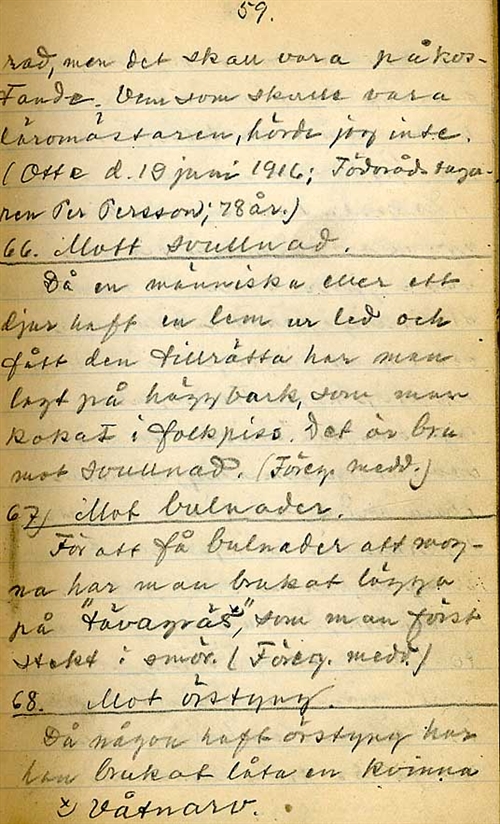 59.
rad, men det skall vara påkos-
tande. Vem som skulle vara
läromästaren, hörde jag inte.
(Otte d. 19 juni 1916; Födorådstaga-
ren Per Persson; 78 år.)
66. Mott svullnad.
Då en människa eller ett
djur haft en lem ur led och
fått den tillrätta har man
lagt på häggbark, som man
kokat i folkpiss. Det är bra
mot svullnad. (Föreg. medd.)
67) Mot bulnader.
För att få bulnader att mog-
na har man brukat lägga
på "tåvagräs"x), som man först
stekt i smör. (Föreg. medd.)
68. Mot örstyng.
Då någon haft örstyng har
han brukat låta en kvinna
x) Våtnarv.